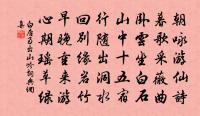 朝詠游仙詩
暮歌采薇曲
卧雲坐白石
山中十五宿
行随出洞水
回别緣岩竹
早晚重来游
心期瑶草緑
白居易出山吟詞典網
集